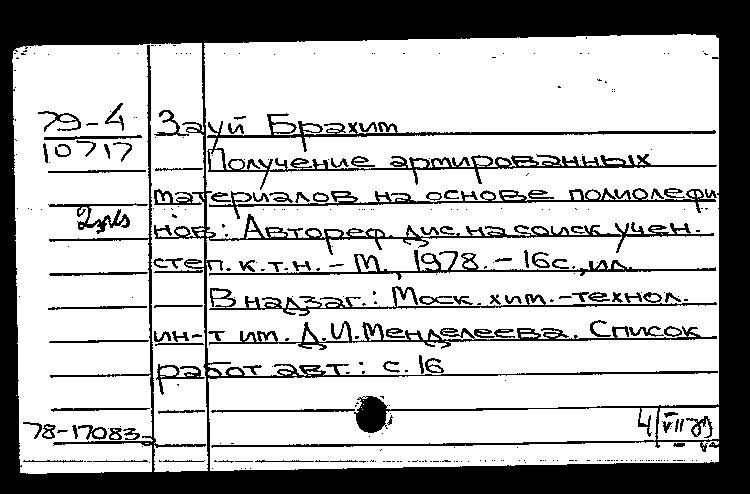 79-4 Зауй Брахим
10717 Получение армированных
материалов на основе полиолефи-
2 экз нов: Автореф. дис. на соиск. учен.
степ. к.т.н. - М., 1978. - 16с., ил.
В надзаг.: Моск. хим.-технол.
ин-т им. Д.И. Менделеева. Список
работ авт.: с. 16
78-17083
4/VII